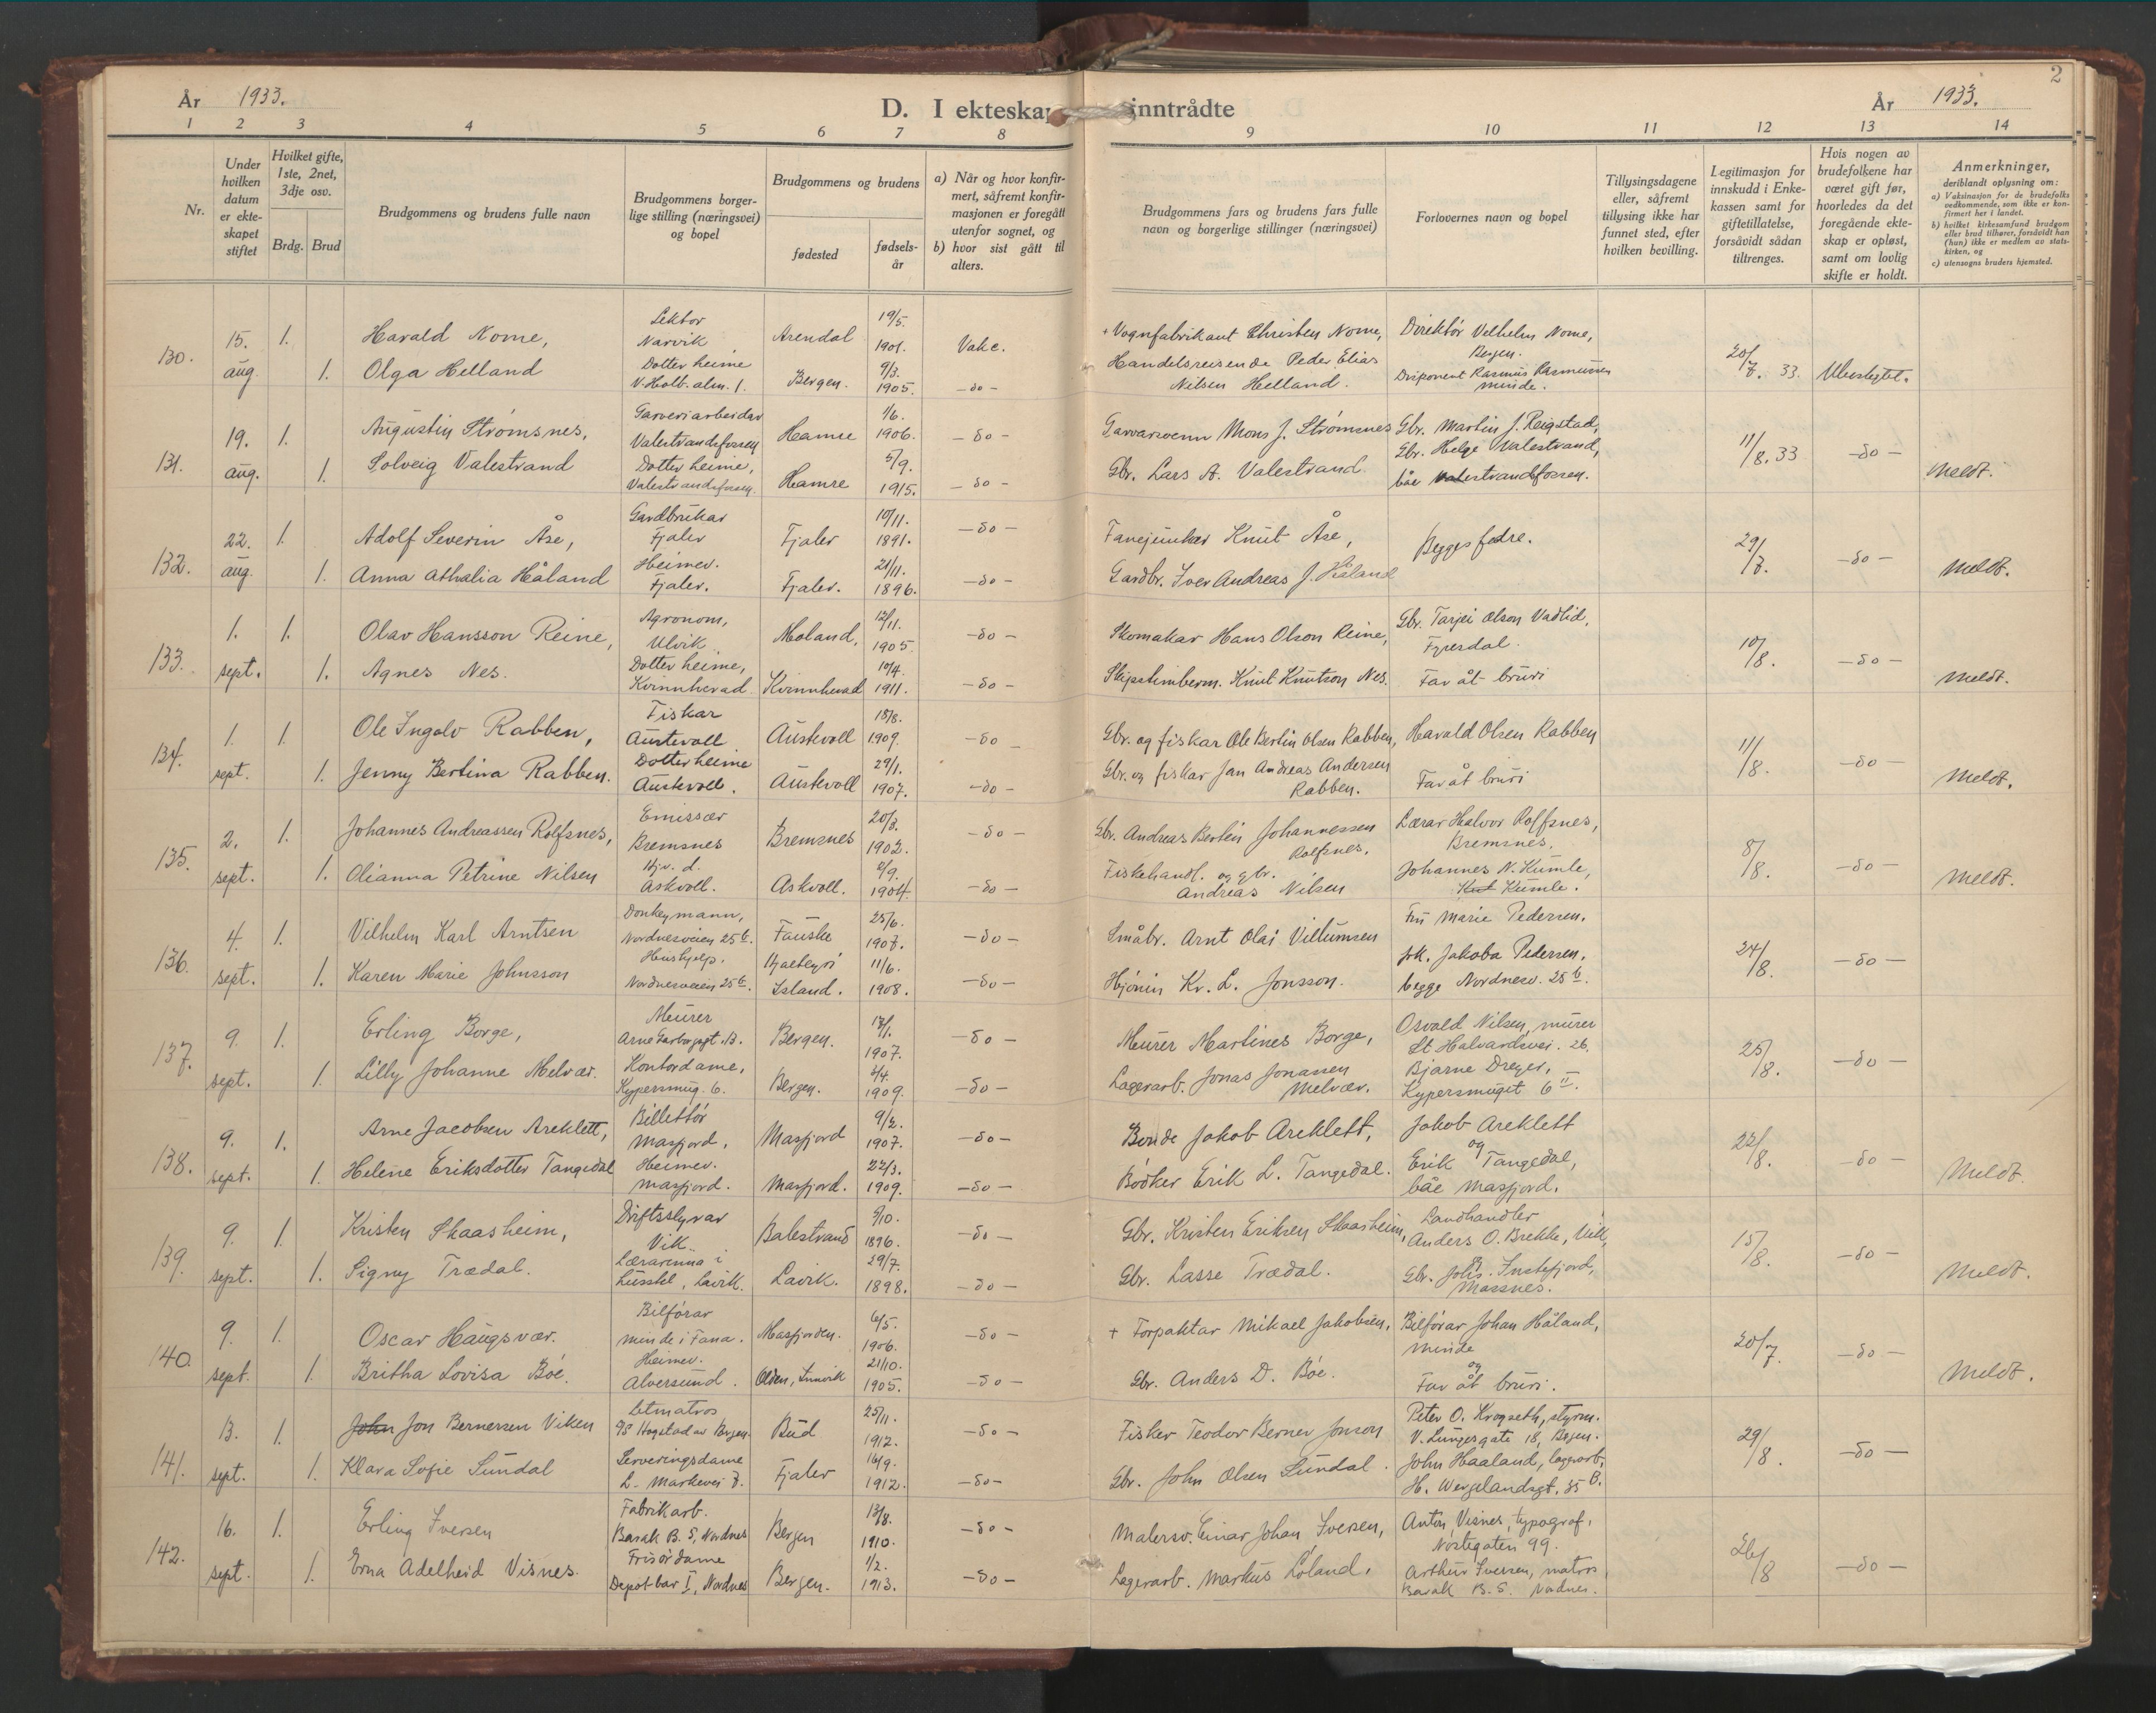 År 1933.
D. I ekteskap inntrådte
År 1933.
2
1 2 3 4 5 6 7 8 9 10 11 12 13 14
Nr.
Under hvilken datum er ekteskapet stiftet
Hvilket gifte, 1ste, 2net, 3dje osv.
Brdg. Brud
Brudgommens og brudens fulle navn
Brudgommens borgerlige stilling (næringsvei) og bopel
Brudgommens og brudens
fødested
fødselsår
a) Når og hvor konfirmert, såfremt konfirmasjonen er foregått utenfor sognet, og
b) hvor sist gått til alters.
Brudgommens fars og brudens fars fulle navn og borgerlige stillinger (næringsvei)
Forlovernes navn og bopel
Tillysingsdagene eller, såfremt tillysing ikke har funnet sted, efter hvilken bevilling.
Legitimasjon for innskudd i Enkekassen samt for giftetillatelse, forsåvidt sådan tiltrenges.
Hvis nogen av brudefolkene har været gift før, hvorledes da det foregående ekteskap er opløst, samt om lovlig skifte er holdt.
Anmerkninger,
deriblandt oplysning om:
a) Vaksinasjon for de brudefolks vedkommende, som ikke er konfirmert her i landet.
b) hvilket kirkesamfund brudgom eller brud tilhører, forsåvidt han (hun) ikke er medlem av statskirken, og
c) utensogns bruders hjemsted.
130. 15. aug. 1. Harald Nome, Lektor Narvik Arendal 19/5. 1901. Vake. + Vognfabrikant Christen Nome, Direktör Velhelm Nome, Bergen. 20/7. 33. Ubeslegtet.
1. Olga Helland Dotter heime V. Holb. alm. 1. Bergen. 9/3. 1905. -do- Handelsreisende Peder Elias Nilsen Helland. Disponent Rasmus Rasmussen minde.
131. 19. aug. 1. Augustin Strømsnes, Garveriarbeidar Valestrandsfossen Hamre 1/6. 1906. -do- Garvarsvenn Mons J. Strømsnes Gbr. Martin J. Reigstad, 11/8. 33 -do- Meldt.
1. Solveig Valestrand Dotter heime, Valestrandsfossen. Hamre 5/9. 1915. -do- Gbr. Lars A. Valestrand. Gbr. Helge Valestrand, båe Valestrandsfossen.
132. 22. aug. 1. Adolf Severin Åse, Gardbrukar Fjaler Fjaler 10/11. 1891. -do- Fanejunker Knut Åse, Begges fedre. 29/7. -do- Meldt.
1. Anna Athalia Håland Heimev. Fjaler. Fjaler. 21/11. 1896. -do- Gardbr. Iver Andreas J. Håland
133. 1. sept. 1. Olav Hansson Reine, Agronom, Ulvik Moland, 12/11. 1905. -do- Skomakar Hans Olson Reine, Gbr. Tarjei Olson Vadlid, Fyresdal. 10/8. -do- Meldt.
1. Agnes Nes. Dotter heime, Kvinnherad. Kvinnherad 10/4. 1911. -do- Skipstimberm. Knut Knutson Nes. Far åt bruri
134. 1. sept. 1. Ole Ingolv Rabben, Fiskar Austevoll Austevoll 18/8. 1909. -do- Gbr. og fiskar Ole Bertin Olsen Rabben, Harald Olsen Rabben 11/8. -do- Meldt.
1. Jenny Bertina Rabben. Dotter heime Austevoll. Austevoll 29/1. 1907. -do- Gbr. og fiskar Jan Andreas Andersen Rabben. Far åt bruri
135. 2. sept. 1. Johannes Andreassen Rolfsnes, Emissær Bremsnes Bremsnes 20/3. 1902. -do- Gbr. Andreas Bertin Johannessen Rolfsnes. Lærar Halvor Rolfsnes, Bremsnes. 8/8. -do- Meldt.
1. Olianna Petrine Nilsen Hjv. d. Askvoll. Askvoll. 2/9. 1904. -do- Fiskehandl. og gbr. Andreas Nilsen Johannes N. Kumle, Kumle.
136. 4. sept. 1. Vilhelm Karl Arntsen Donkeymann, Nordnesveien 25 b. Fauske 25/6. 1907. -do- Småbr. Arnt Olai Villumsen Fru Marie Pedersen. 24/8. -do-
1. Karen Marie Johnsson Hushjelp, Nordnesveien 25 b. Island. 11/6. 1908. -do- Kr. L. Jonsson. frk. Jakoba Pedersen, begge Nordnesv. 25 b.
137. 9. sept. 1. Erling Borge, Meurer Arne Garborgsgt. Bergen. 17/1. 1907. -do- Meurer Martines Borge, Osvald Nilsen, murer St Halvardsvei. 26. 25/8. -do-
1. Lilly Johanne Melvær. Kontordame, Kypersmug. 6. Bergen. 3/4. 1909. -do- Lagerarb. Jonas Jonassen Melvær. Bjarne Dreyer, Kypersmuget 6 II.
138. 9. sept. 1. Arne Jacobsen Areklett, Billettör Masfjord. Masfjord 9/2. 1907. -do- Bonde Jakob Areklett, Jakob Areklett og 22/8. -do- Meldt.
1. Helene Eriksdotter Tangedal Heimev. Masfjord. Masfjord. 22/3. 1909. -do- Bödker Erik L. Tangedal. Erik Tangedal, båe Masfjord.
139. 9. sept. 1. Kristen Skaasheim, Driftsstyrar Vik. Balestrand 9/10. 1896. -do- Gbr. Kristen Eriksen Skaasheim, Landhandler Anders O. Brekke, Vik, 15/8. -do- Meldt.
1. Signy Trædal. Lærarinna i Lavik. Lavik. 29/7. 1898. -do- Gbr. Lasse Trædal. og Gbr. Johs. Instefjord, Massnes.
140. 9. sept. 1. Oscar Haugsvær. Bilförar minde i Fana. Masfjorden. 6/5. 1906. -do- + Forpaktar Mikael Jakobsen, Bilförar Johan Håland, Minde og 20/7. -do- Meldt.
1. Britha Lovisa Böe. Heimev. Alversund. Olden, Innvik 21/10. 1905. -do- Gbr. Anders D. Böe. Far åt bruri.
141. 13. sept. 1. John Jon Bernersen Viken Letmatros Hogstad av Bergen. Bud 25/11. 1912. -do- Fisker Teodor Berner Jonson Peter O. Krogseth, styrm. V. Lungegate 18, Bergen. 29/8. -do-
1. Klara Sofie Sundal Serveringsdame L. Markevei 7. Fjaler 16/9. 1912. -do- Gbr. John Olsen Sundal. John Haaland, lagerarb. H. Wergelandsgt. 35 B.
142. 16. sept. 1. Erling Iversen Fabrikarb. Barak B. 5, Nordnes Bergen 13/8. 1910. -do- Malersv. Einar Johan Iversen, Anton Visnes, typograf. Nöstegaten 99. 26/8 -do-
1. Erna Adelheid Visnes. Frisördame Depot bar I, Nordnes Bergen. 1/2. 1913. -do- Lagerarb. Markus Löland. Arthur Iversen, matros Barak B. 5. Nordnes.